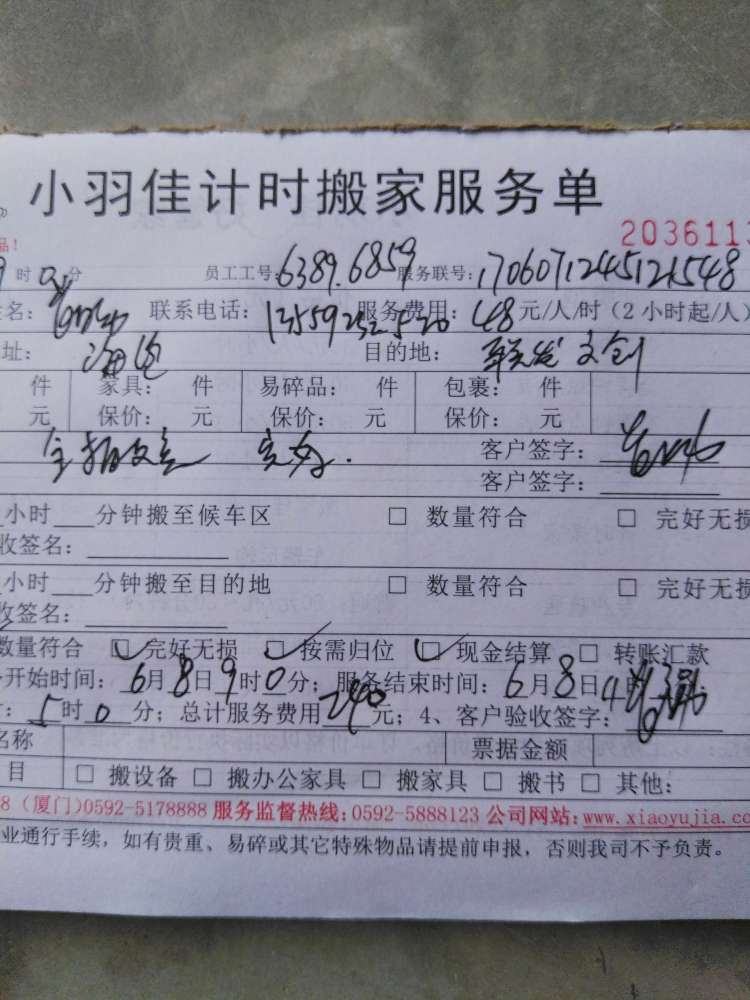 小羽佳计时搬家服务单
2036113
品!
9时0分 员工工号:6389.6859 服务联号:170607124512548
姓名: 联系电话: 服务费用:48元/人/时(2小时起/人)
址: 目的地:联发文创
件 家具: 件 易碎品: 件 包裹: 件
元 保价: 元 保价: 元 保价: 元
客户签字:
客户签字:
小时 分钟搬至候车区 □ 数量符合 □ 完好无损
收签名:
小时 分钟搬至目的地 □ 数量符合 □ 完好无损
收签名:
数量符合 ☑ 完好无损 ☑ 按需归位 ☑ 现金结算 □ 转账汇款
开始时间:6月8日9时0分;服务结束时间:6月8日
:5时0分;总计服务费用240元;4、客户验收签字:
名称 票据金额
目 □ 搬设备 □ 搬办公家具 □ 搬家具 □ 搬书 □ 其他:
8(厦门)0592-5178888 服务监督热线:0592-5888123 公司网站:www.xiaoyujia.co
业通行手续,如有贵重、易碎或其它特殊物品请提前申报,否则我司不予负责。